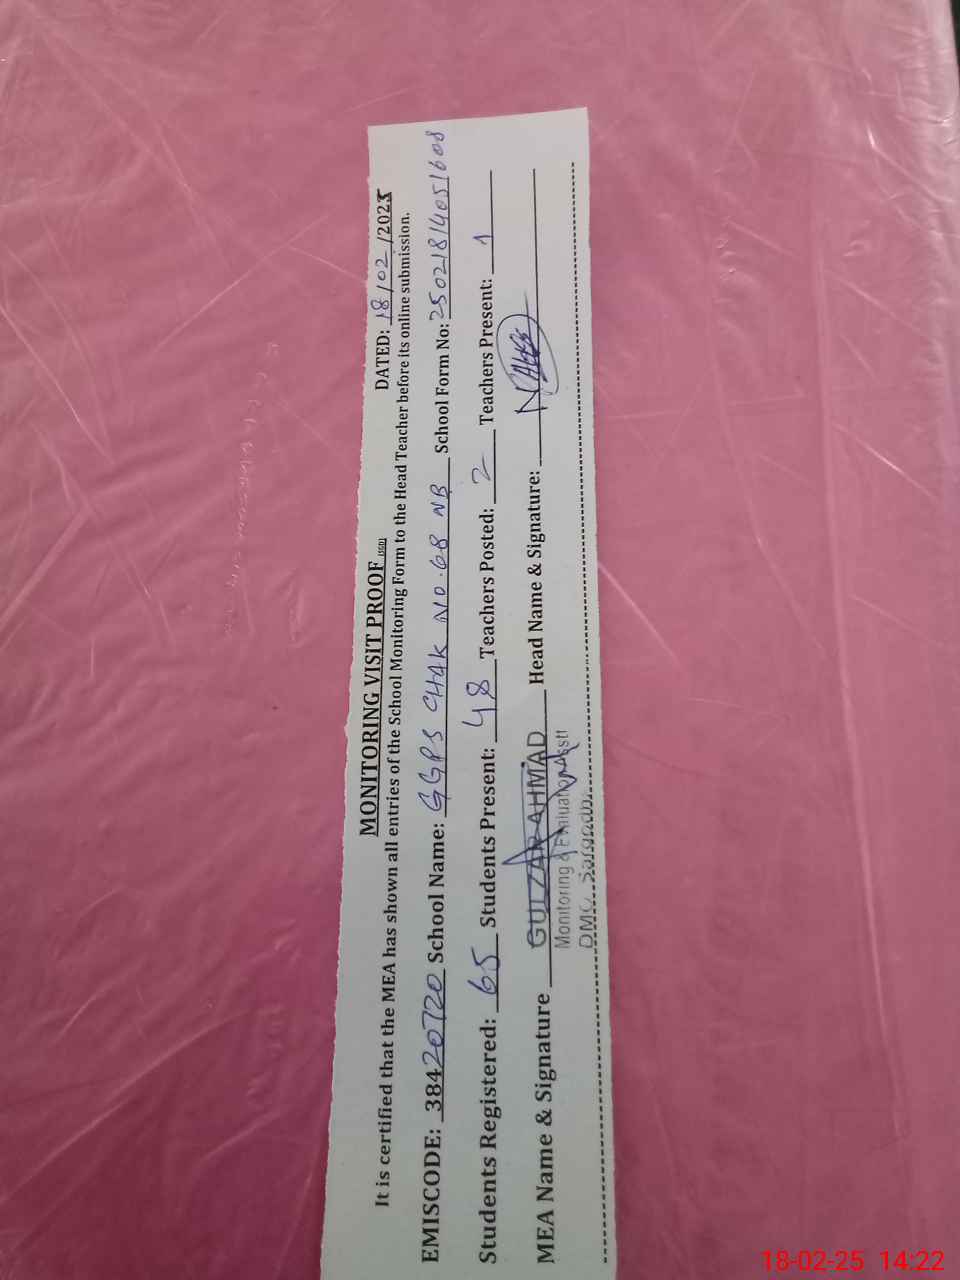 MONITORING VISIT PROOF (SGD)
DATED: 18/02/2025
It is certified that the MEA has shown all entries of the School Monitoring Form to the Head Teacher before its online submission.
EMISCODE: 38420720 School Name: GGPS CHAK NO.68 NB School Form No: 25021814051608
Students Registered: 65 Students Present: 48 Teachers Posted: 2 Teachers Present: 1
MEA Name & Signature GULZAR AHMAD Head Name & Signature:
Monitoring & Evaluation Asstt
DMO, Sargodha
18-02-25 14:22